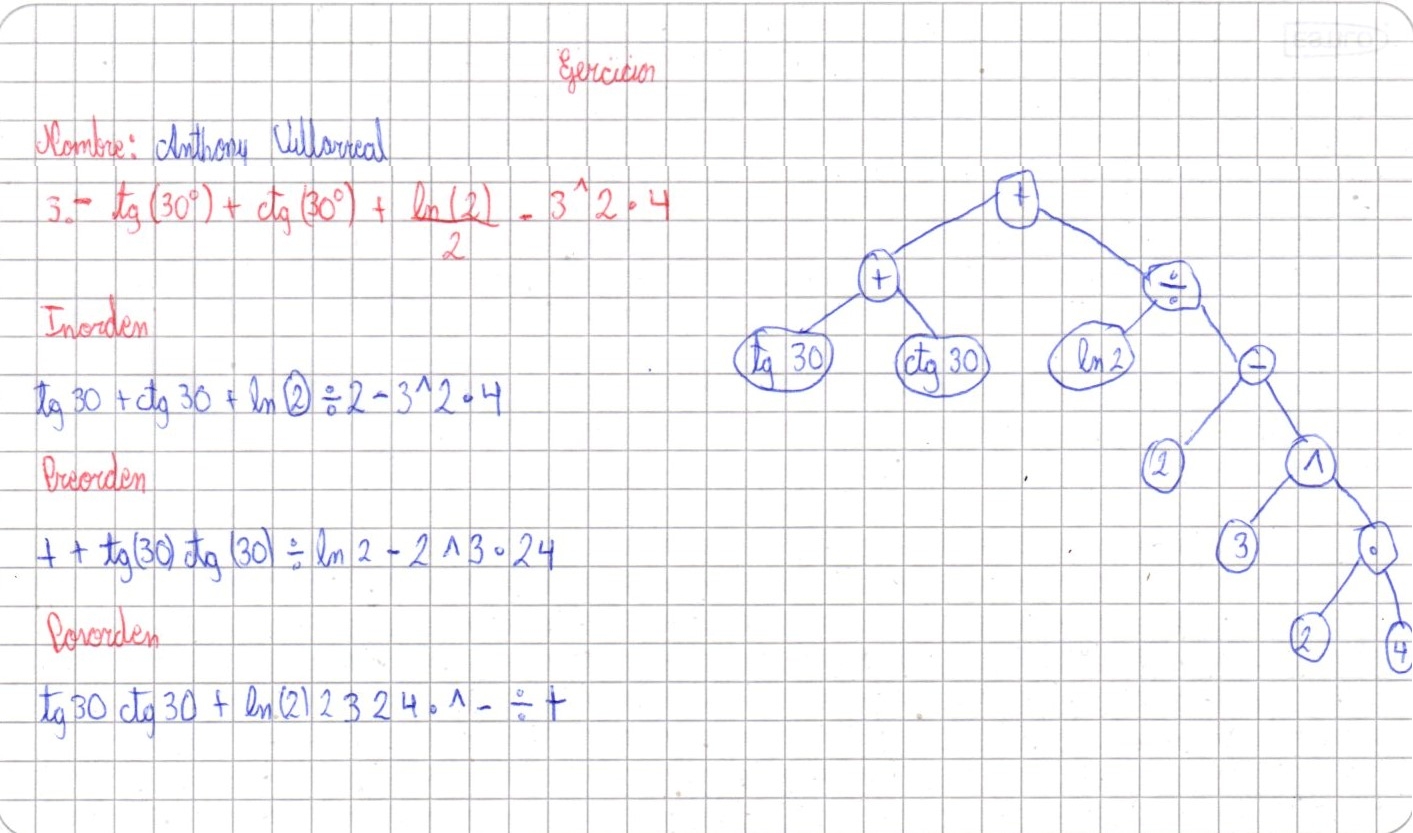 Ejercicios
Nombre: Anthony Villarreal
3.- tg (30°) + ctg (30°) + ln (2) / 2 - 3^2 • 4
Inorden
tg 30 + ctg 30 + ln (2) ÷ 2 - 3^2 • 4
Preorden
+ + tg(30) ctg (30) ÷ ln 2 - 2 ^ 3 • 2 4
Posorden
tg 30 ctg 30 + ln (2) 2 3 2 4 • ^ - ÷ +
+
+ ÷
tg 30 ctg 30 ln 2 -
2 ^
3 •
2 4